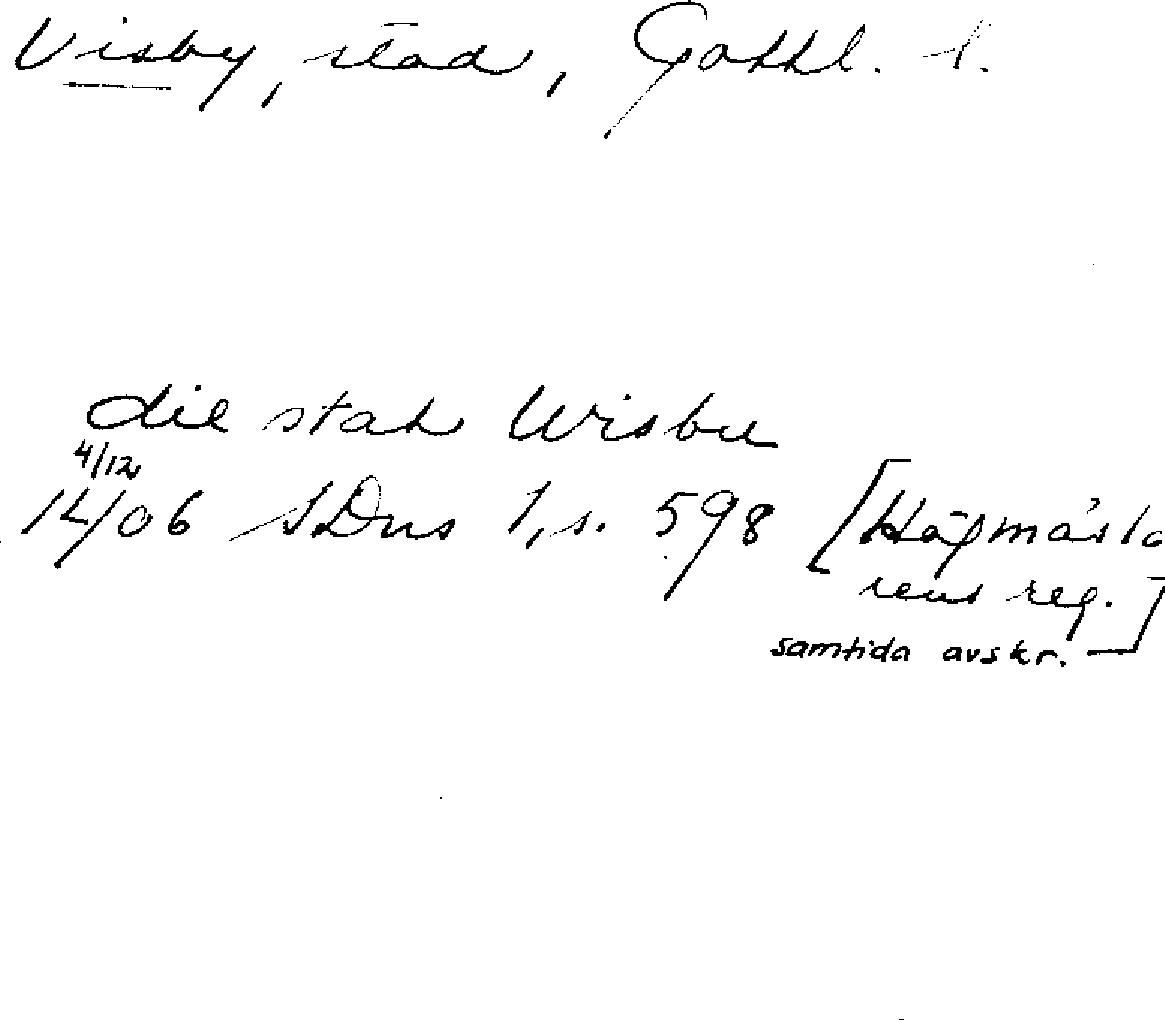 Visby, stad, Gottl. l.
die stat Wisbu
4/12
1406 SDns 1, s. 598 [Högmästa
rens reg.
samtida avskr.]